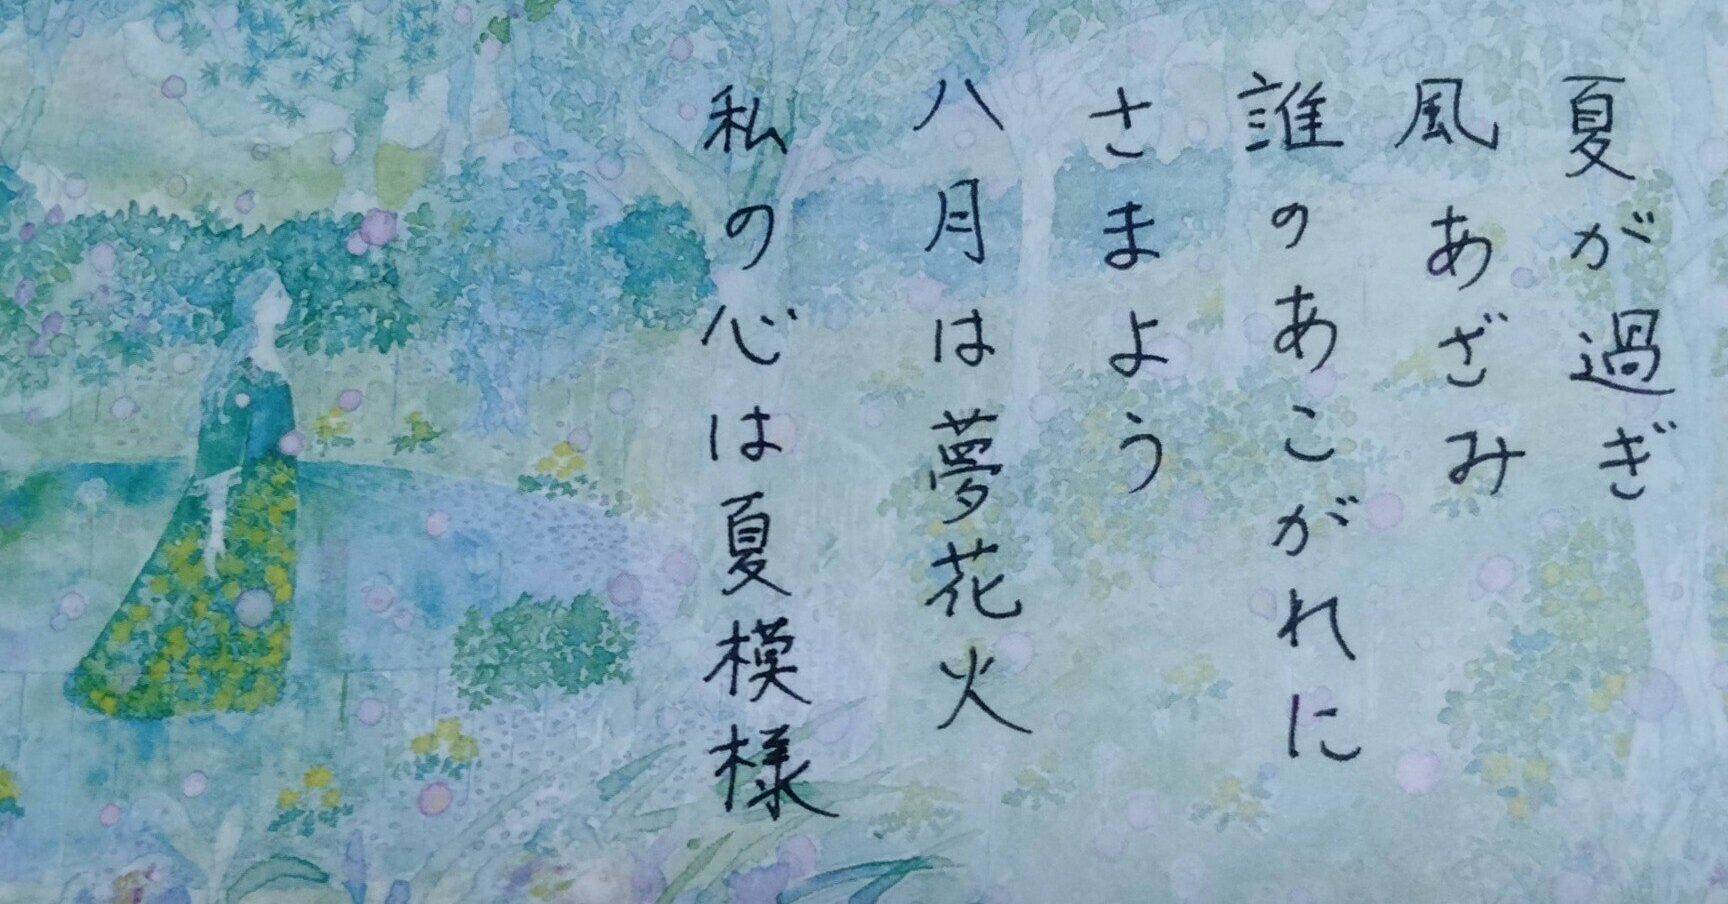 夏が過ぎ
風あざみ
誰のあこがれに
さまよう
八月は夢花火
私の心は夏模様